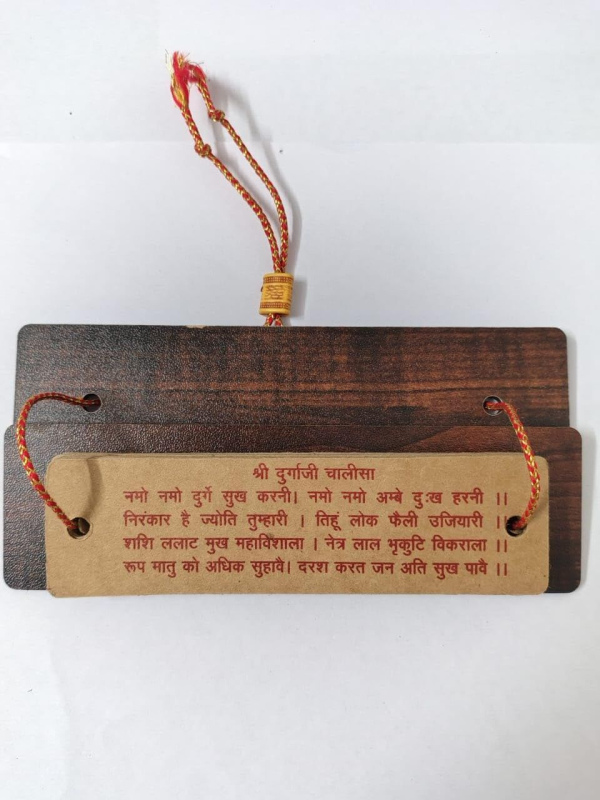 श्री दुर्गाजी चालीसा
नमो नमो दुर्गे सुख करनी। नमो नमो अम्बे दुःख हरनी ।।
निरंकार है ज्योति तुम्हारी । तिहूं लोक फैली उजियारी ।।
शशि ललाट मुख महाविशाला । नेत्र लाल भृकुटि विकराला ।।
रूप मातु को अधिक सुहावै। दरश करत जन अति सुख पावै ।।